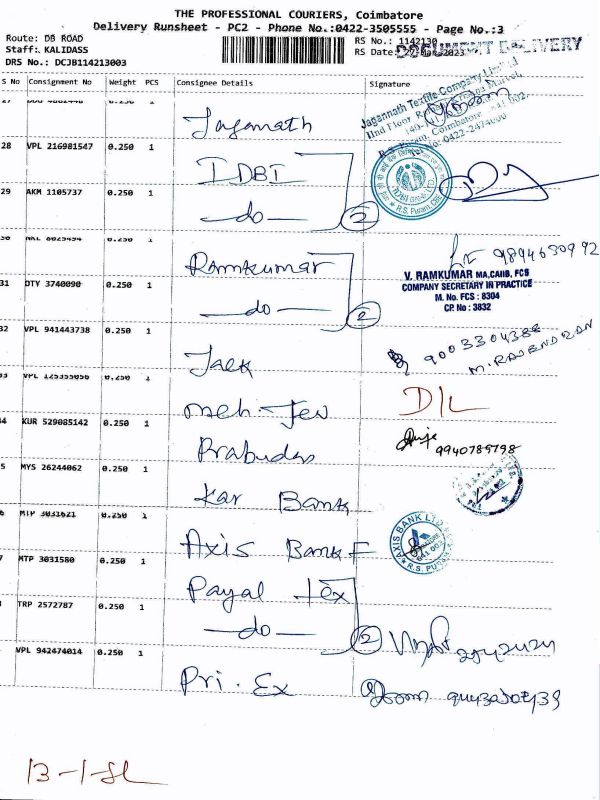 THE PROFESSIONAL COURIERS, Coimbatore
Delivery Runsheet - PC2 - Phone No.:0422-3505555 - Page No.:3
Route: DB ROAD
Staff: KALIDASS
DRS No.: DCJB114213003
RS No.: 1142130
RS Date: 27-Mar-2023
DOCUMENT DELIVERY
S No Consignment No Weight PCS Consignee Details Signature
27 0.250 1 Jagannath
Jagannath Textile Company Limited
28 VPL 216981547 0.250 1 IDBI
IDBI BANK LTD.
R.S. Puram, CBE
29 AKM 1105737 0.250 1 -do- 2
30 NKL 8025494 0.250 1 Ramkumar
9894630992
V. RAMKUMAR MA,CAIIB, FCS
COMPANY SECRETARY IN PRACTICE
M. No. FCS : 8304
CP. No : 3832
31 DTY 3740090 0.250 1 -do- 2
32 VPL 941443738 0.250 1 Jack
9003304388
M. RAJENDRAN
33 VPL 125355056 0.250 1
D/L
34 KUR 529085142 0.250 1 Prabudas
9940785798
5 MYS 26244062 0.250 1 Kar Bank
6 MTP 3031621 0.250 1 Axis Bank F
AXIS BANK LTD
R.S. Puram
7 MTP 3031580 0.250 1 Payal Tex
TRP 2572787 0.250 1 -do- 2
VPL 942474014 0.250 1 Pri. Ex